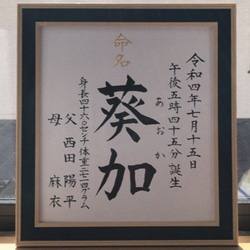 令和四年七月十五日
午後五時四十五分誕生
命名
葵加
あおか
身長四十六・〇センチ体重二六二一グラム
父 西田陽平
母 麻衣